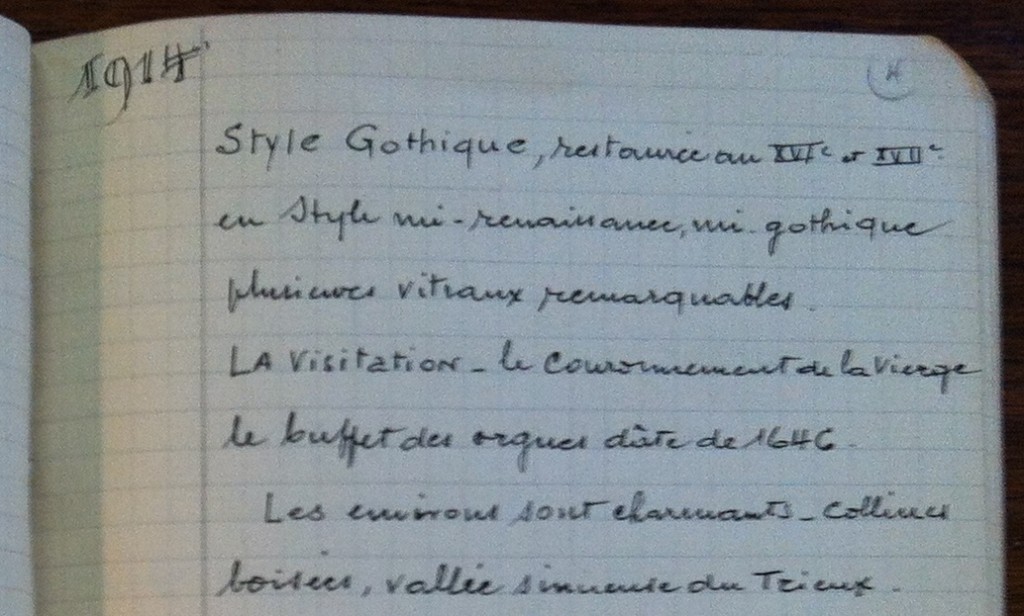 1914
Style Gothique, restaurée au XVIe et XVIIe
en Style mi-renaissance, mi-gothique
plusieures vitraux remarquables.
LA Visitation - le Couronnement de la Vierge
le buffet des orgues dâte de 1646.
Les environs sont charmants - Collines
boisées, vallée sinueuse du Trieux.